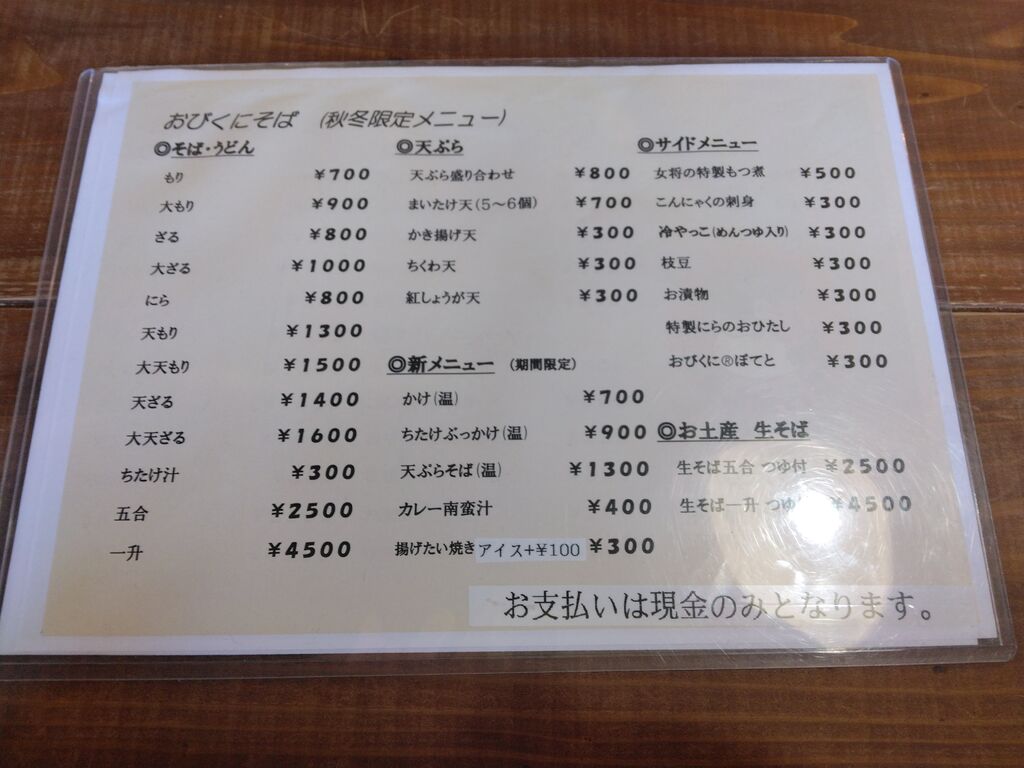 おびくにそば (秋冬限定メニュー)
◎そば・うどん
もり ￥700
大もり ￥900
ざる ￥800
大ざる ￥1000
にら ￥800
天もり ￥1300
大天もり ￥1500
天ざる ￥1400
大天ざる ￥1600
ちたけ汁 ￥300
五合 ￥2500
一升 ￥4500
◎天ぷら
天ぷら盛り合わせ ￥800
まいたけ天(5～6個) ￥700
かき揚げ天 ￥300
ちくわ天 ￥300
紅しょうが天 ￥300
◎新メニュー (期間限定)
かけ(温) ￥700
ちたけぶっかけ(温) ￥900
天ぷらそば(温) ￥1300
カレー南蛮汁 ￥400
揚げたい焼き アイス+¥100 ￥300
◎サイドメニュー
女将の特製もつ煮 ￥500
こんにゃくの刺身 ￥300
冷やっこ(めんつゆ入り) ￥300
枝豆 ￥300
お漬物 ￥300
特製にらのおひたし ￥300
おびくに®ぽてと ￥300
◎お土産 生そば
生そば五合 つゆ付 ￥2500
生そば一升 つゆ ￥4500
お支払いは現金のみとなります。